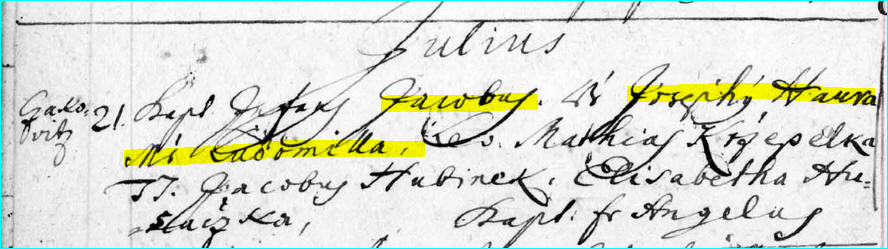 Julius
Gako- 21. Bapt Infans Jacobus. P. Josephus Haura
vitz Mr Ludomilla, Lev. Mathias Krzepelka
TT. Jacobus Hubinek, Elisabetha Hu-
Bapt: fr Angelus